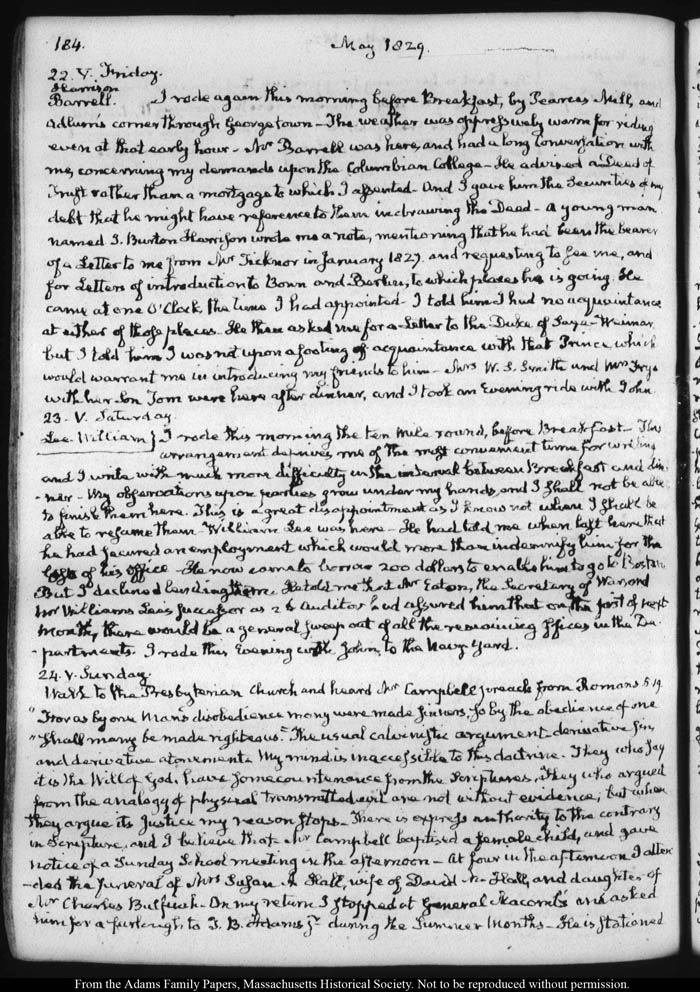 184. May 1829.
22. V. Friday.
Harrison
Barrell. I rode again this morning before Breakfast, by Pearces Mill, and
Adlum's corner through Georgetown - The weather was oppressively warm for riding
even at that early hour - Mr Barrell was here, and had a long conversation with
me, concerning my demands upon the Columbian College - He advised a Deed of
Trust rather than a mortgage to which I assented - And I gave him the Securities of my
debt that he might have reference to them in drawing the Deed - A young man
named J. Burton Harrison wrote me a note, mentioning that he had been the bearer
of a Letter to me from Mr Ticknor in January 1827. and requesting to see me, and
for Letters of introduction to Bonn and Berlin, to which places he is going. He
came at one O'Clock, the time I had appointed - I told him I had no acquaintance
at either of those places - He then asked me for a Letter to the Duke of Saxe-Weimar
but I told him I was not upon a footing of acquaintance with that Prince which
would warrant me in introducing my friends to him - Mrs W. S. Smith and Mrs Frye
with her Son Tom were here after dinner, and I took an Evening ride with John.
23. V. Saturday.
Lee. William} I rode this morning the ten mile round, before Breakfast - This
arrangement deprives me of the most convenient time for writing
and I write with much more difficulty in the interval between Breakfast and din-
-ner - My observations upon parties grow under my hands, and I shall not be able
to finish them here. This is a great disappointment as I know not when I shall be
able to resume them - William Lee was here - He had told me when last here that
he had secured an employment which would more than indemnify him for the
loss of his office - He now came to borrow 200 dollars to enable him to go to Boston
But I declined lending them. He told me that Mr Eaton, the Secretary of War, and
Mr Williams Lee's successor as 2d Auditor had assured him that on the first of next
Month, there would be a general sweep out of all the remaining Offices in the De-
-partments. I rode this Evening with John, to the Navy Yard.
24. V. Sunday.
Walk to the Presbyterian Church and heard Mr Campbell preach from Romans 5. 19
"For as by one Man's disobedience many were made sinners, so by the obedience of one
"shall many be made righteous." The usual calvinistic argument, derivative sin,
and derivative atonement. My mind is inaccessible to this doctrine. They who say
it is the Will of God, have some countenance from the Scriptures, they who argued
from the analogy of physical transmitted evil are not without evidence; but when
they argue its Justice my reason stops - There is express authority to the contrary
in Scripture, and I believe that - Mr Campbell baptized a female child, and gave
notice of a Sunday School meeting in the afternoon - At four in the afternoon I atten-
-ded the funeral of Mrs Susan A Hall, wife of David A. Hall, and daughter of
Mr Charles Bulfinch - On my return I stopped at General Macomb's and asked
him for a furlough to J. B. Adams Jr. during the Summer Months - He is stationed
From the Adams Family Papers, Massachusetts Historical Society. Not to be reproduced without permission.